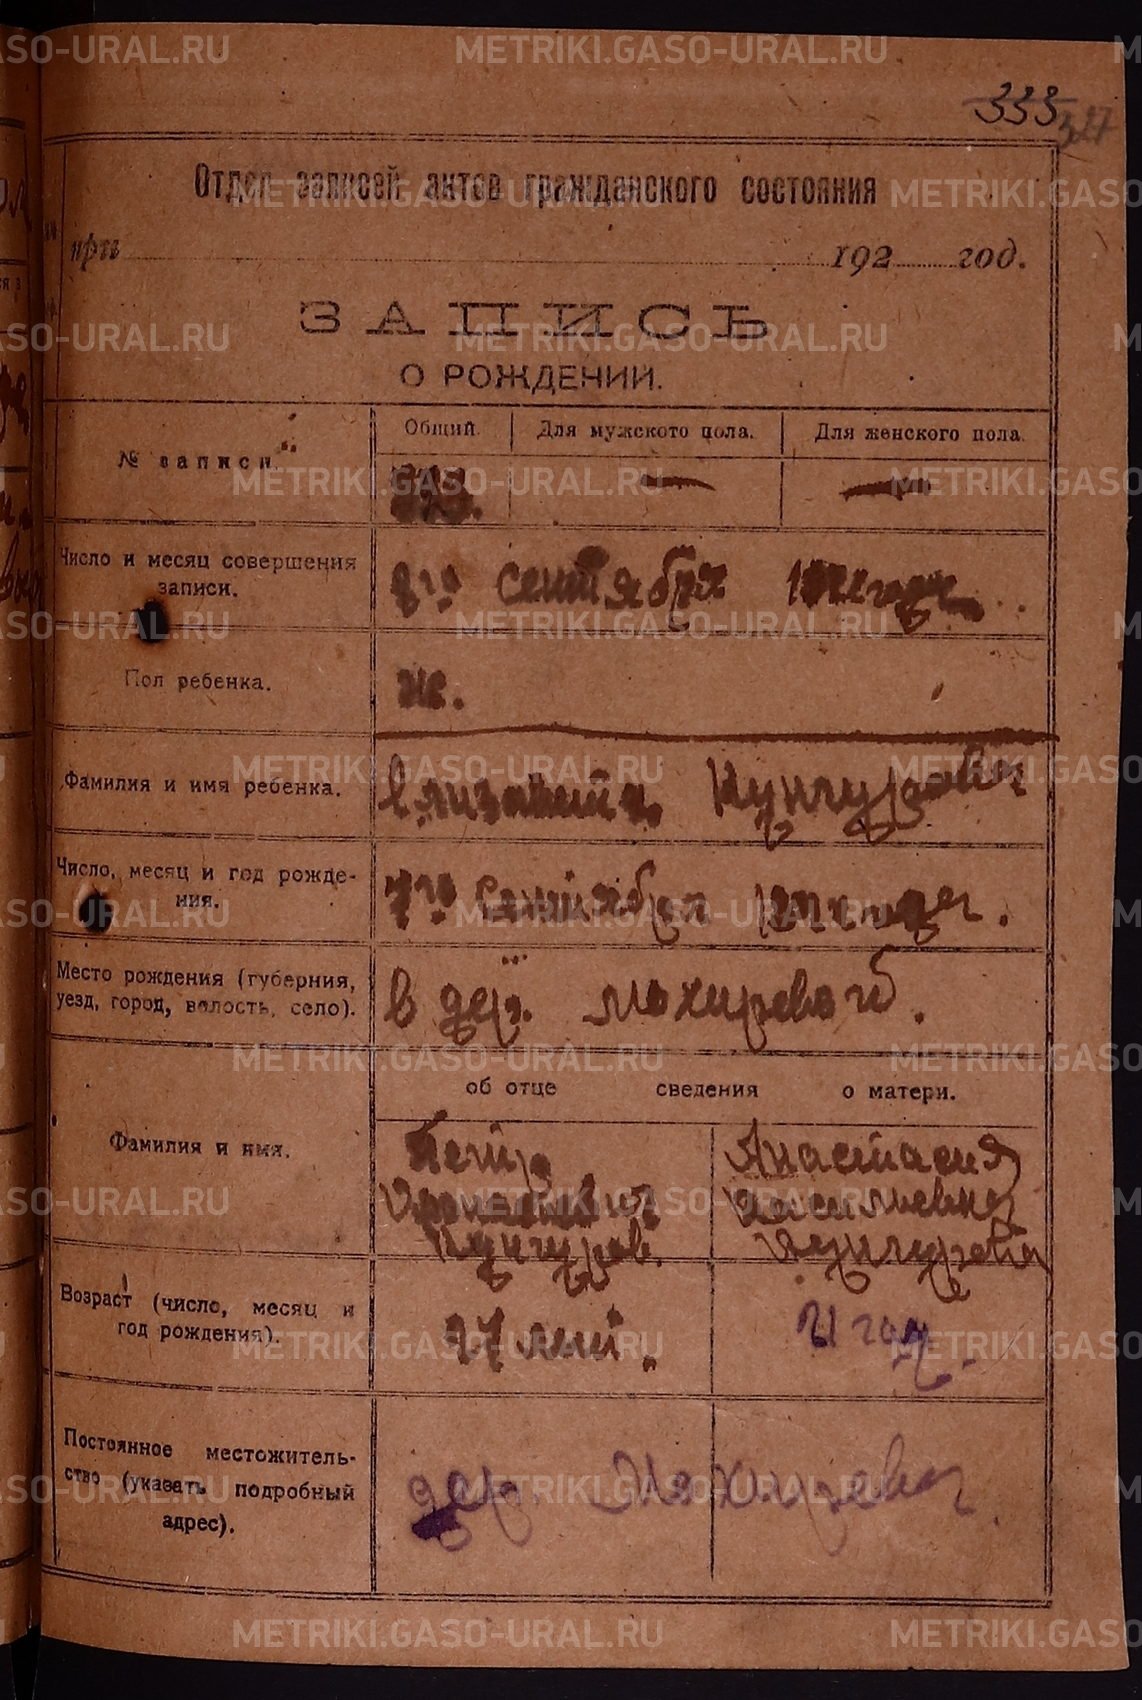 METRIKI.GASO-URAL.RU
333
327
Отдел записей актов гражданского состояния
при 192 год.
ЗАПИСЬ
О РОЖДЕНИИ.
№ записи.
Общий. Для мужского пола. Для женского пола.
Число и месяц совершения
записи.
8го Сентября
Пол ребенка.
же.
Фамилия и имя ребенка.
Елизавета Кунгурова
Число, месяц и год рожде-
ния.
7го Сентября
Место рождения (губерния,
уезд, город, волость, село).
в дер. Мохиревой.
об отце сведения о матери.
Фамилия и имя.
Петр
Кунгуров.
Анастасия
Васильевна
Кунгурова
Возраст (число, месяц и
год рождения).
27 лет.
21 год.
Постоянное местожитель-
ство (указать подробный
адрес).
дер. Мохирева.